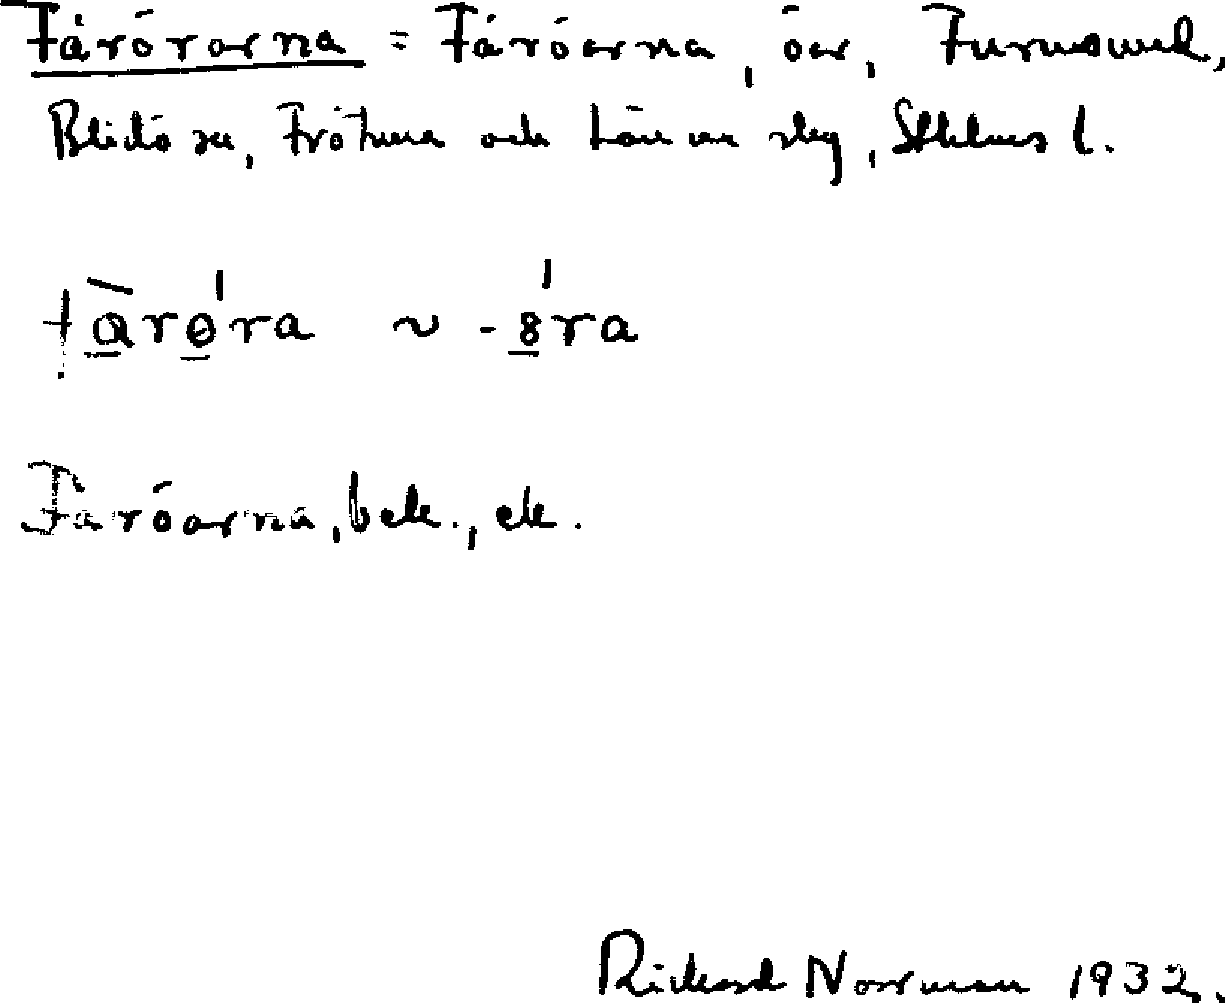 Fårörarna = Fåröarna, öar, Furusund,
Blidö sn, Frötuna och Länna slg, Sthlms l.
fàrö́ra ~ -ȣ́ra
Fåröarna, bek., ek.
Rickard Norrman 1932.